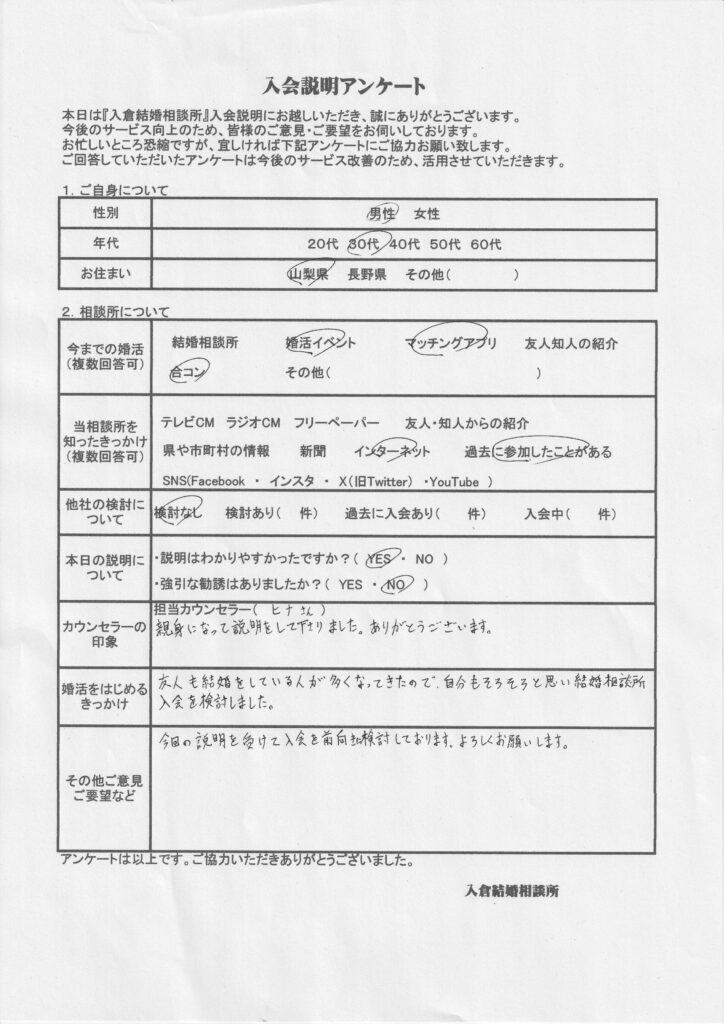 入会説明アンケート
本日は『入倉結婚相談所』入会説明にお越しいただき、誠にありがとうございます。
今後のサービス向上のため、皆様のご意見・ご要望をお伺いしております。
お忙しいところ恐縮ですが、宜しければ下記アンケートにご協力お願い致します。
ご回答していただいたアンケートは今後のサービス改善のため、活用させていただきます。
1. ご自身について
性別 男性 女性
年代 20代 30代 40代 50代 60代
お住まい 山梨県 長野県 その他( )
2. 相談所について
今までの婚活 結婚相談所 婚活イベント マッチングアプリ 友人知人の紹介
(複数回答可) 合コン その他( )
当相談所を テレビCM ラジオCM フリーペーパー 友人・知人からの紹介
知ったきっかけ 県や市町村の情報 新聞 インターネット 過去に参加したことがある
(複数回答可) SNS(Facebook ・ インスタ ・ X(旧Twitter) ・YouTube )
他社の検討に
ついて 検討なし 検討あり( 件) 過去に入会あり( 件) 入会中( 件)
本日の説明に ・説明はわかりやすかったですか?( YES ・ NO )
ついて ・強引な勧誘はありましたか?( YES ・ NO )
担当カウンセラー( ヒナさん )
カウンセラーの 親身になって説明をして下りました。ありがとうございます。
印象
婚活をはじめる 友人も結婚をしている人が多くなってきたので、自分もそろそろと思い結婚相談所
きっかけ 入会を検討しました。
今回の説明を受けて入会を前向きに検討しております。よろしくお願いします。
その他ご意見
ご要望など
アンケートは以上です。ご協力いただきありがとうございました。
入倉結婚相談所